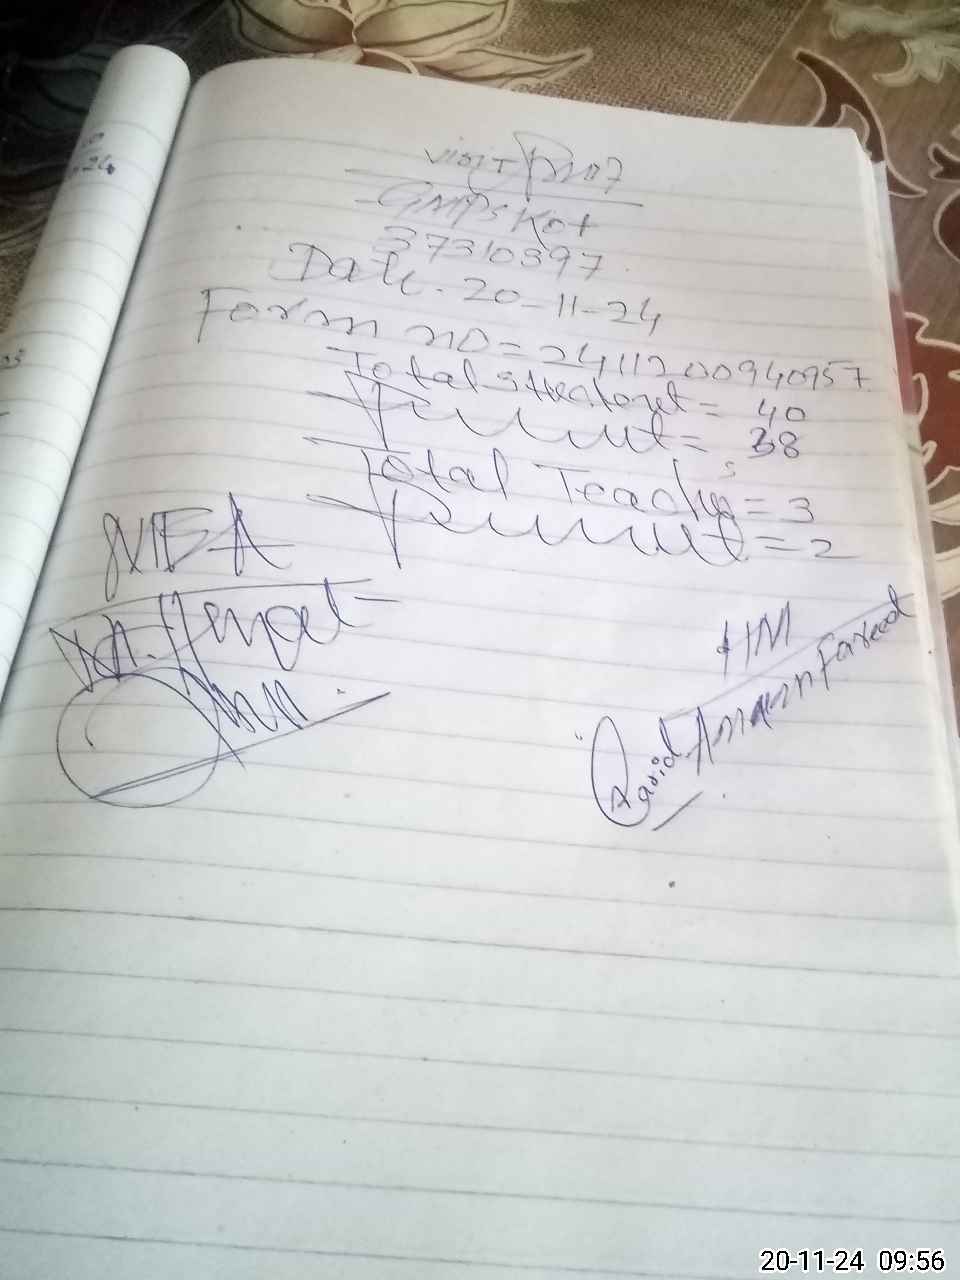 visit Proof
GMPS Kot
37310397
Date. 20-11-24
Form no = 24112 00940957
Total = 40
Present = 38
Total Teachers = 3
Present = 2
MEA
HM
Farid Amaan Fareed
20-11-24 09:56